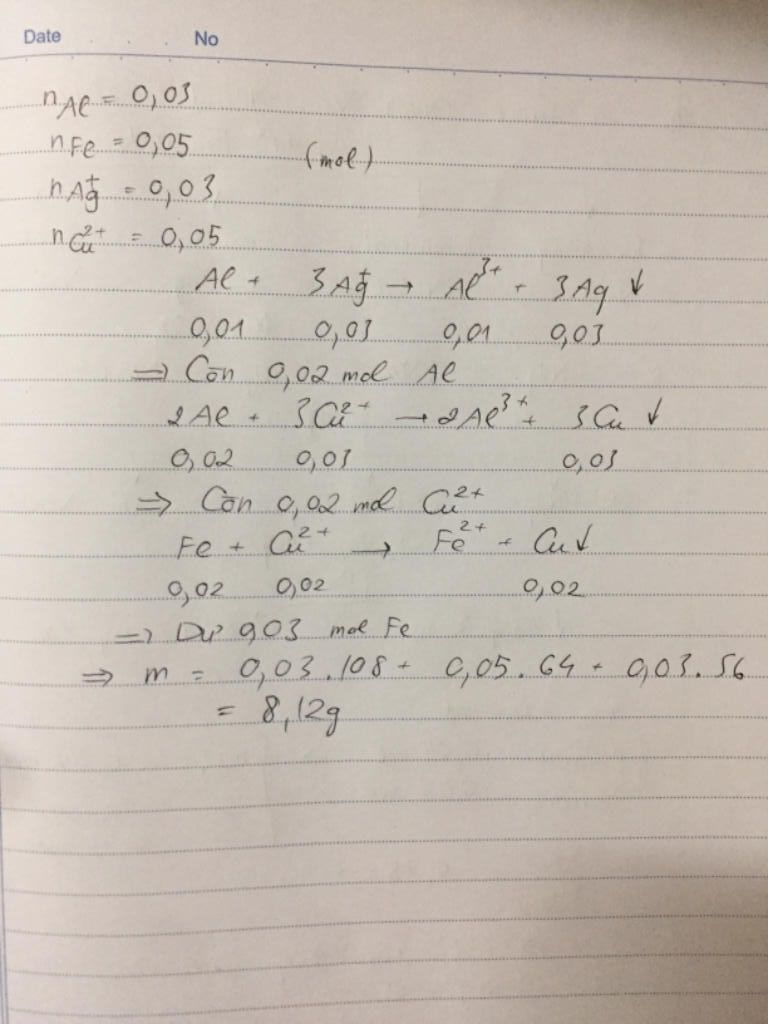 Date No
nAl = 0,03
nFe = 0,05
(mol)
nAg⁺ = 0,03
nCu²⁺ = 0,05
Al + 3Ag⁺ → Al³⁺ + 3Ag ↓
0,01 0,03 0,01 0,03
=> Còn 0,02 mol Al
2Al + 3Cu²⁺ → 2Al³⁺ + 3Cu ↓
0,02 0,03 0,03
=> Còn 0,02 mol Cu²⁺
Fe + Cu²⁺ → Fe²⁺ + Cu↓
0,02 0,02 0,02
=> Dư 0,03 mol Fe
=> m = 0,03.108 + 0,05.64 + 0,03.56
= 8,12g